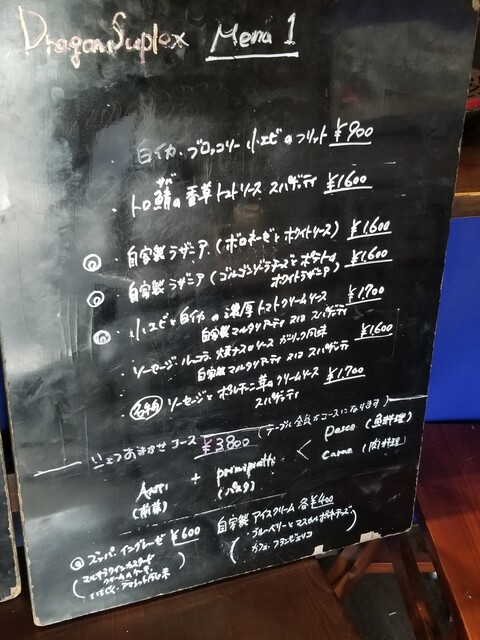 Dragon Suplex Menu 1
白イカ・ブロッコリー 小エビのフリット ¥900
・トロ鯖の香草トマトソース スパゲッティ ¥1600
サバ
・自家製ラザニア (ボロネーゼとホワイトソース) ¥1600
・自家製ラザニア (ゴルゴンゾーラチーズとポテトの ¥1600
ホワイトラザニア)
・小エビと白イカの濃厚トマトクリームソース ¥1700
自家製マルタリアーティ 又は スパゲッティ
・ソーセージ・ルーコラ 焼ナスのソース ガーリック風味 ¥1600
自家製マルタリアーティ 又は スパゲッティ
・ソーセージとポルチーニ茸のクリームソース ¥1700
スパゲッティ
おまかせコース ¥3800 (テーブル全員がコースになります)
Anti + primipiatti < pesce (魚料理)
(前菜) (パスタ) carne (肉料理)
ズッパ イングレーゼ ¥600
自家製アイスクリーム 各¥400
ブルーベリーとマスカルポーネチーズ
カフェ・フランジェリコ